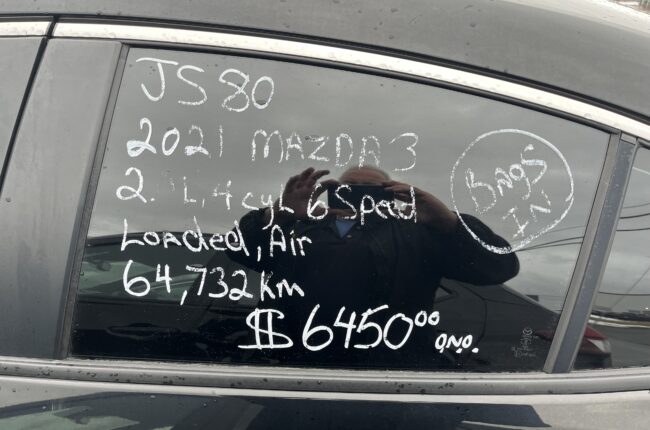 JS80
2021 MAZDA3
2. L, 4 cyl 6 Speed
Loaded, Air
64,732 Km
$6450⁰⁰ o.n.o.
Bags
In